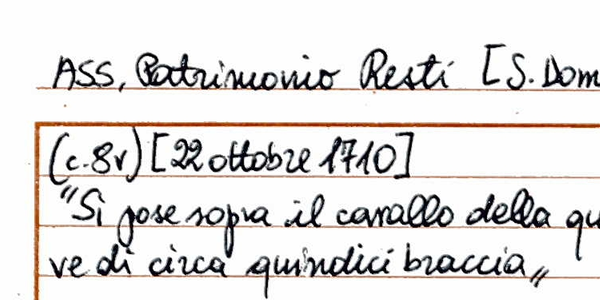 ASS, Patrimonio Resti [S. Dom
(c.8v) [22 ottobre 1710]
"Si pose sopra il cavallo della qu
ve di circa quindici braccia„